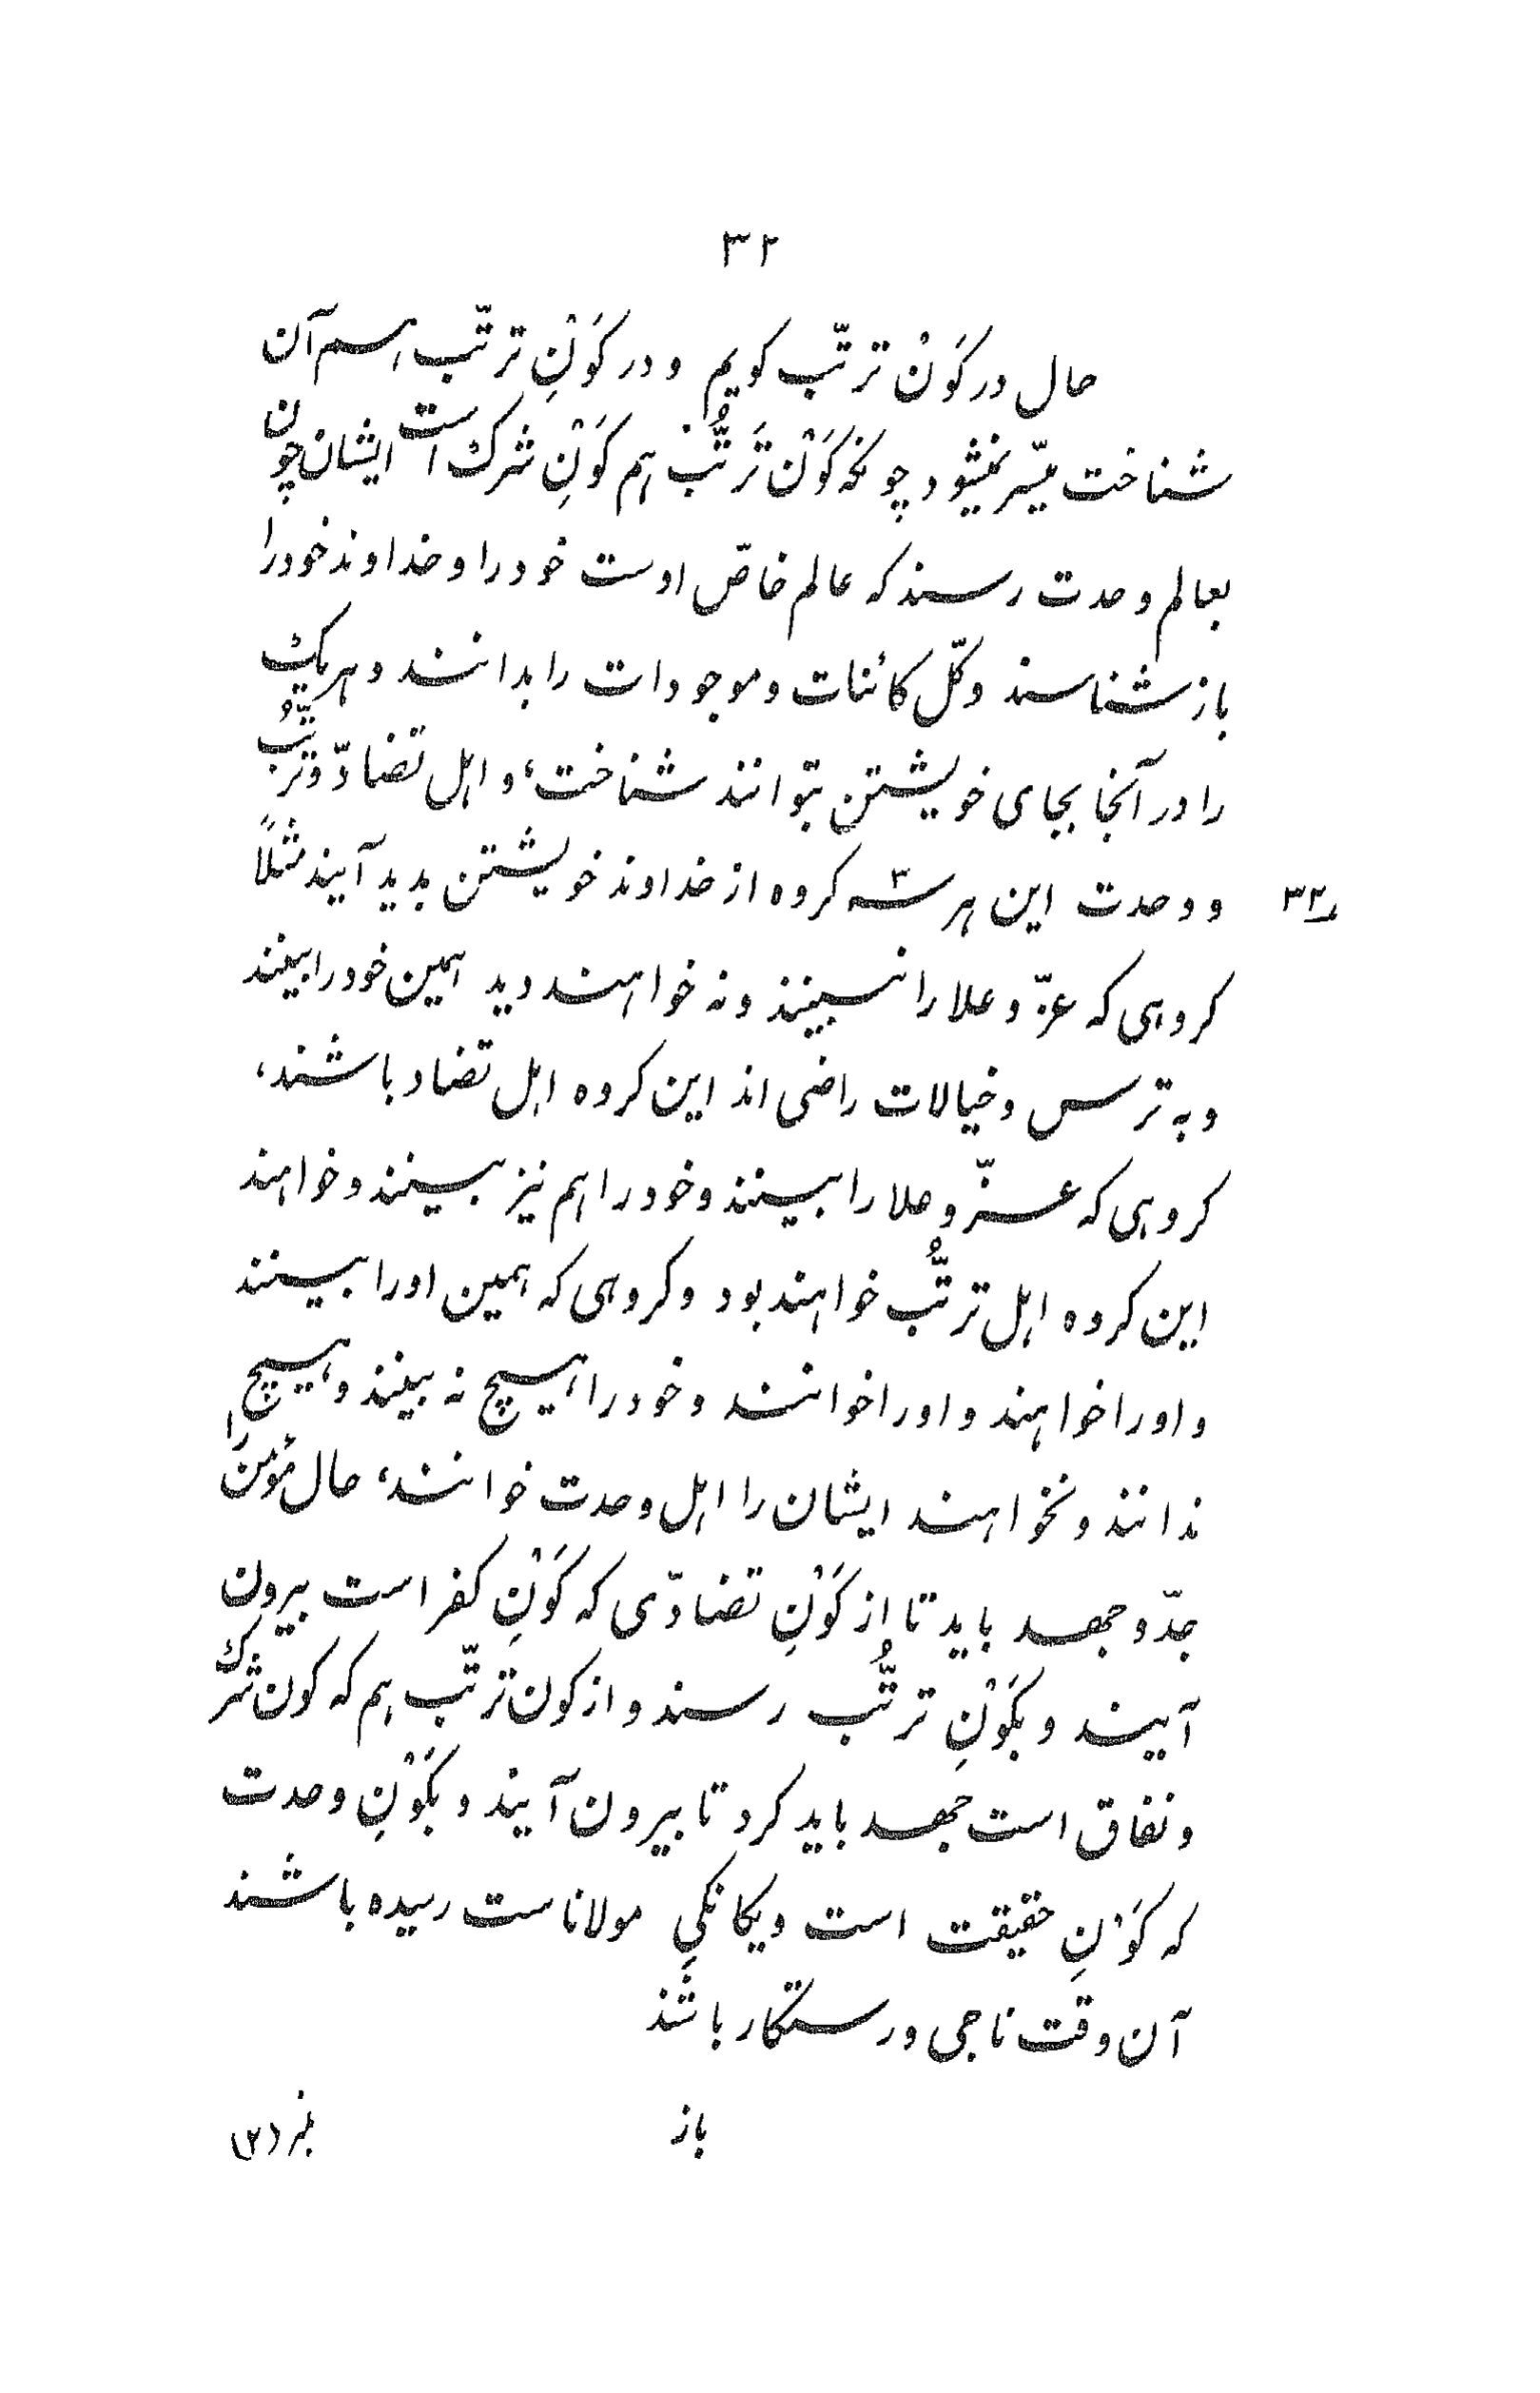 ۳۲
حال در کَوْنْ ترتّب کویم و در کَوْنِ ترتّب اسم آن
شناخت میسّر نمیشود چونکه کَوْن تَرَتُّب هم کَوْنِ شرک است ایشان چون
بعالم وحدت رسند که عالم خاصّ اوست خود را و خداوند خود را
باز شناسند و کلّ کائنات و موجودات را بدانند و هر یک
را در آنجا بجای خویشتن بتوانند شناخت، و اهل تضادّ و ترتُّب
و وحدت این هر سه ۳ کروه از خداوند خویشتن بدید آیند مثلاً
کروهی که عزّ و علا را نبینند و نه خواهند دید همین خود را بینند
و به ترس و خیالات راضی اند این کروه اهل تضاد باشند،
کروهی که عزّ و علا را ببینند و خود را هم نیز ببینند و خواهند
این کروه اهل ترتُّب خواهند بود و کروهی که همین او را ببینند
و او را خواهند و او را خوانند و خود را هیچ نه بینند و هیچ
ندانند و نخواهند ایشان را اهل وحدت خوانند، حال مؤمن را
جدّ و جهد باید تا از کَوْنِ تضادّی که کَوْنِ کفر است بیرون
آیند و بکَوْنِ ترتُّب رسند و از کون ترتّب هم که کون شرک
و نفاق است جهد باید کرد تا بیرون آیند و بکَوْنِ وحدت
که کَوْنِ حقیقت است و یکانکیِ مولاناست رسیده باشند
آن وقت ناجی و رستکار باشند
باز